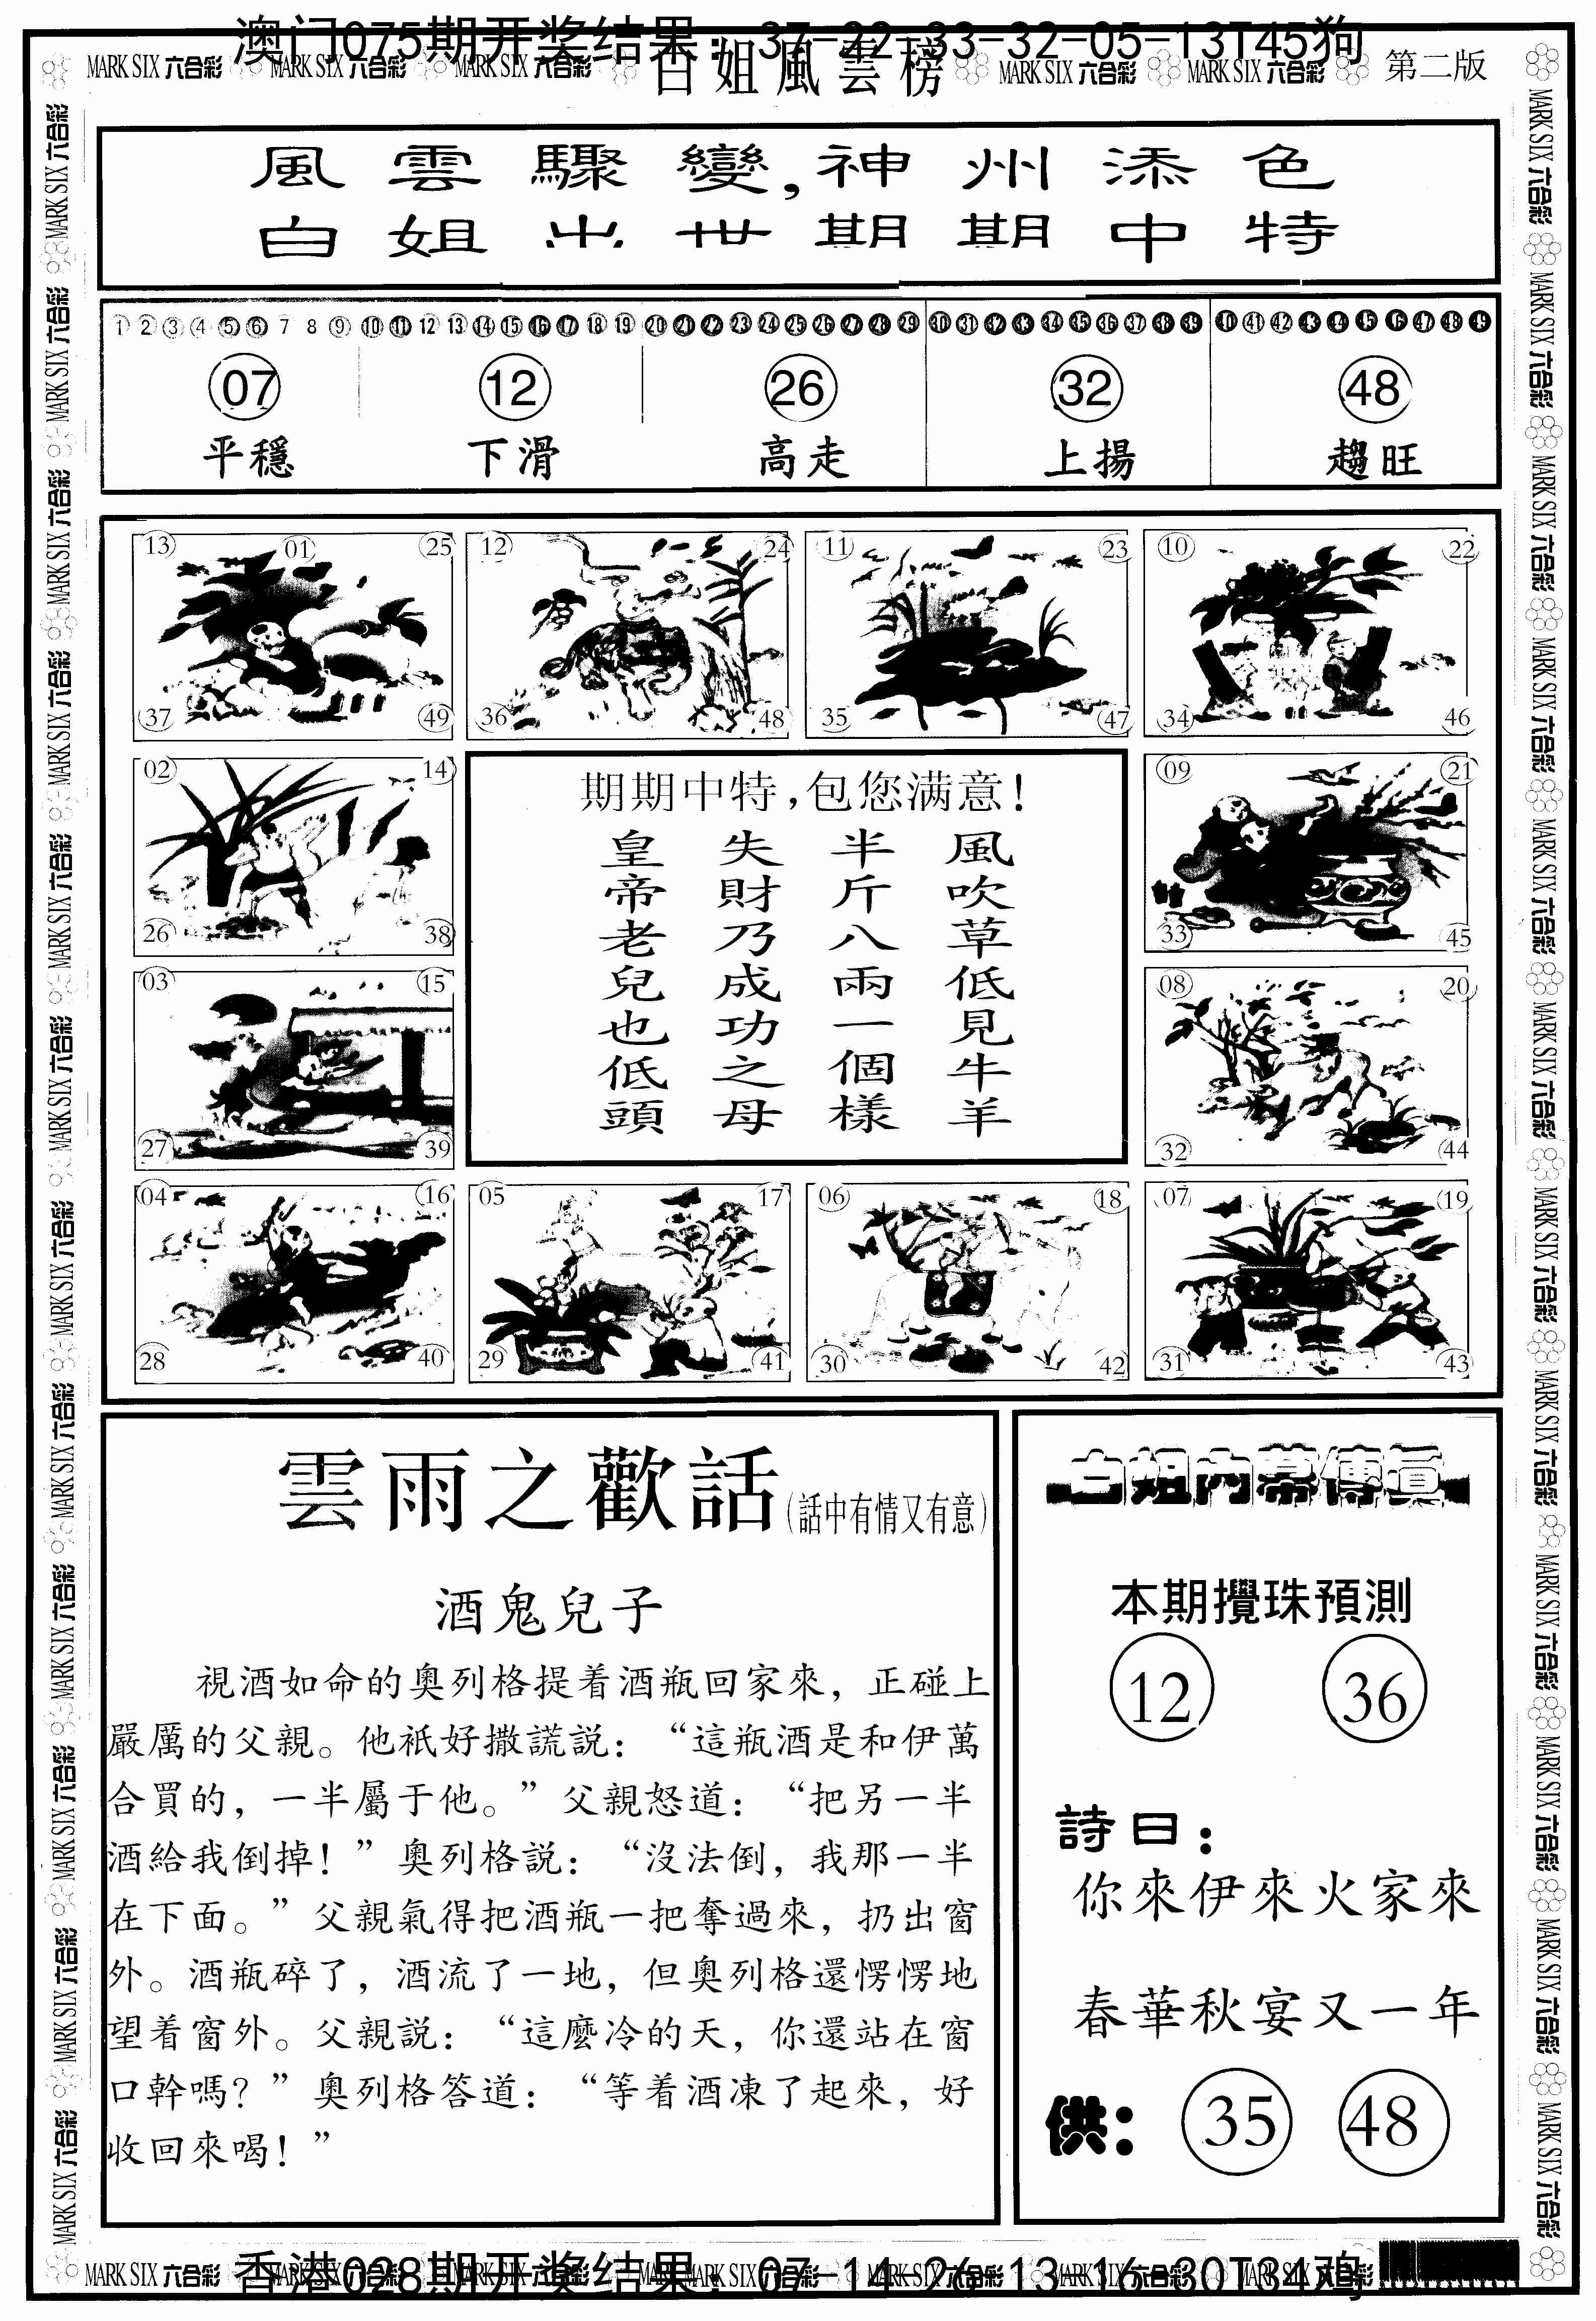 澳门075期开奖结果：37-22-33-32-05-13T45狗
MARK SIX 六合彩 MARK SIX 六合彩 MARK SIX 六合彩 白姐風雲榜 MARK SIX 六合彩 MARK SIX 六合彩 第二版
風雲驟變,神州添色
白姐出世期期中特
1 2 3 4 5 6 7 8 9 10 11 12 13 14 15 16 17 18 19 20 21 22 23 24 25 26 27 28 29 30 31 32 33 34 35 36 37 38 39 40 41 42 43 44 45 46 47 48 49
07 12 26 32 48
平穩 下滑 高走 上揚 趨旺
13 01 25 12 24 11 23 10 22
37 49 36 48 35 47 34 46
02 14 09 21
26 38 33 45
03 15 08 20
27 39 32 44
04 16 05 17 06 18 07 19
28 40 29 41 30 42 31 43
期期中特,包您满意!
風吹草低見牛羊
半斤八兩一個樣
失財乃成功之母
皇帝老兒也低頭
雲雨之歡話(話中有情又有意)
酒鬼兒子
視酒如命的奧列格提着酒瓶回家來，正碰上
嚴厲的父親。他祇好撒謊説：“這瓶酒是和伊萬
合買的，一半屬于他。”父親怒道：“把另一半
酒給我倒掉！”奧列格説：“沒法倒，我那一半
在下面。”父親氣得把酒瓶一把奪過來，扔出窗
外。酒瓶碎了，酒流了一地，但奧列格還愣愣地
望着窗外。父親説：“這麼冷的天，你還站在窗
口幹嗎？”奧列格答道：“等着酒凍了起來，好
收回來喝！”
白姐内幕傳真
本期攪珠預測
12 36
詩曰：
你來伊來火家來
春華秋宴又一年
供： 35 48
香港028期开奖结果：07-14-26-13-16-30T34鸡